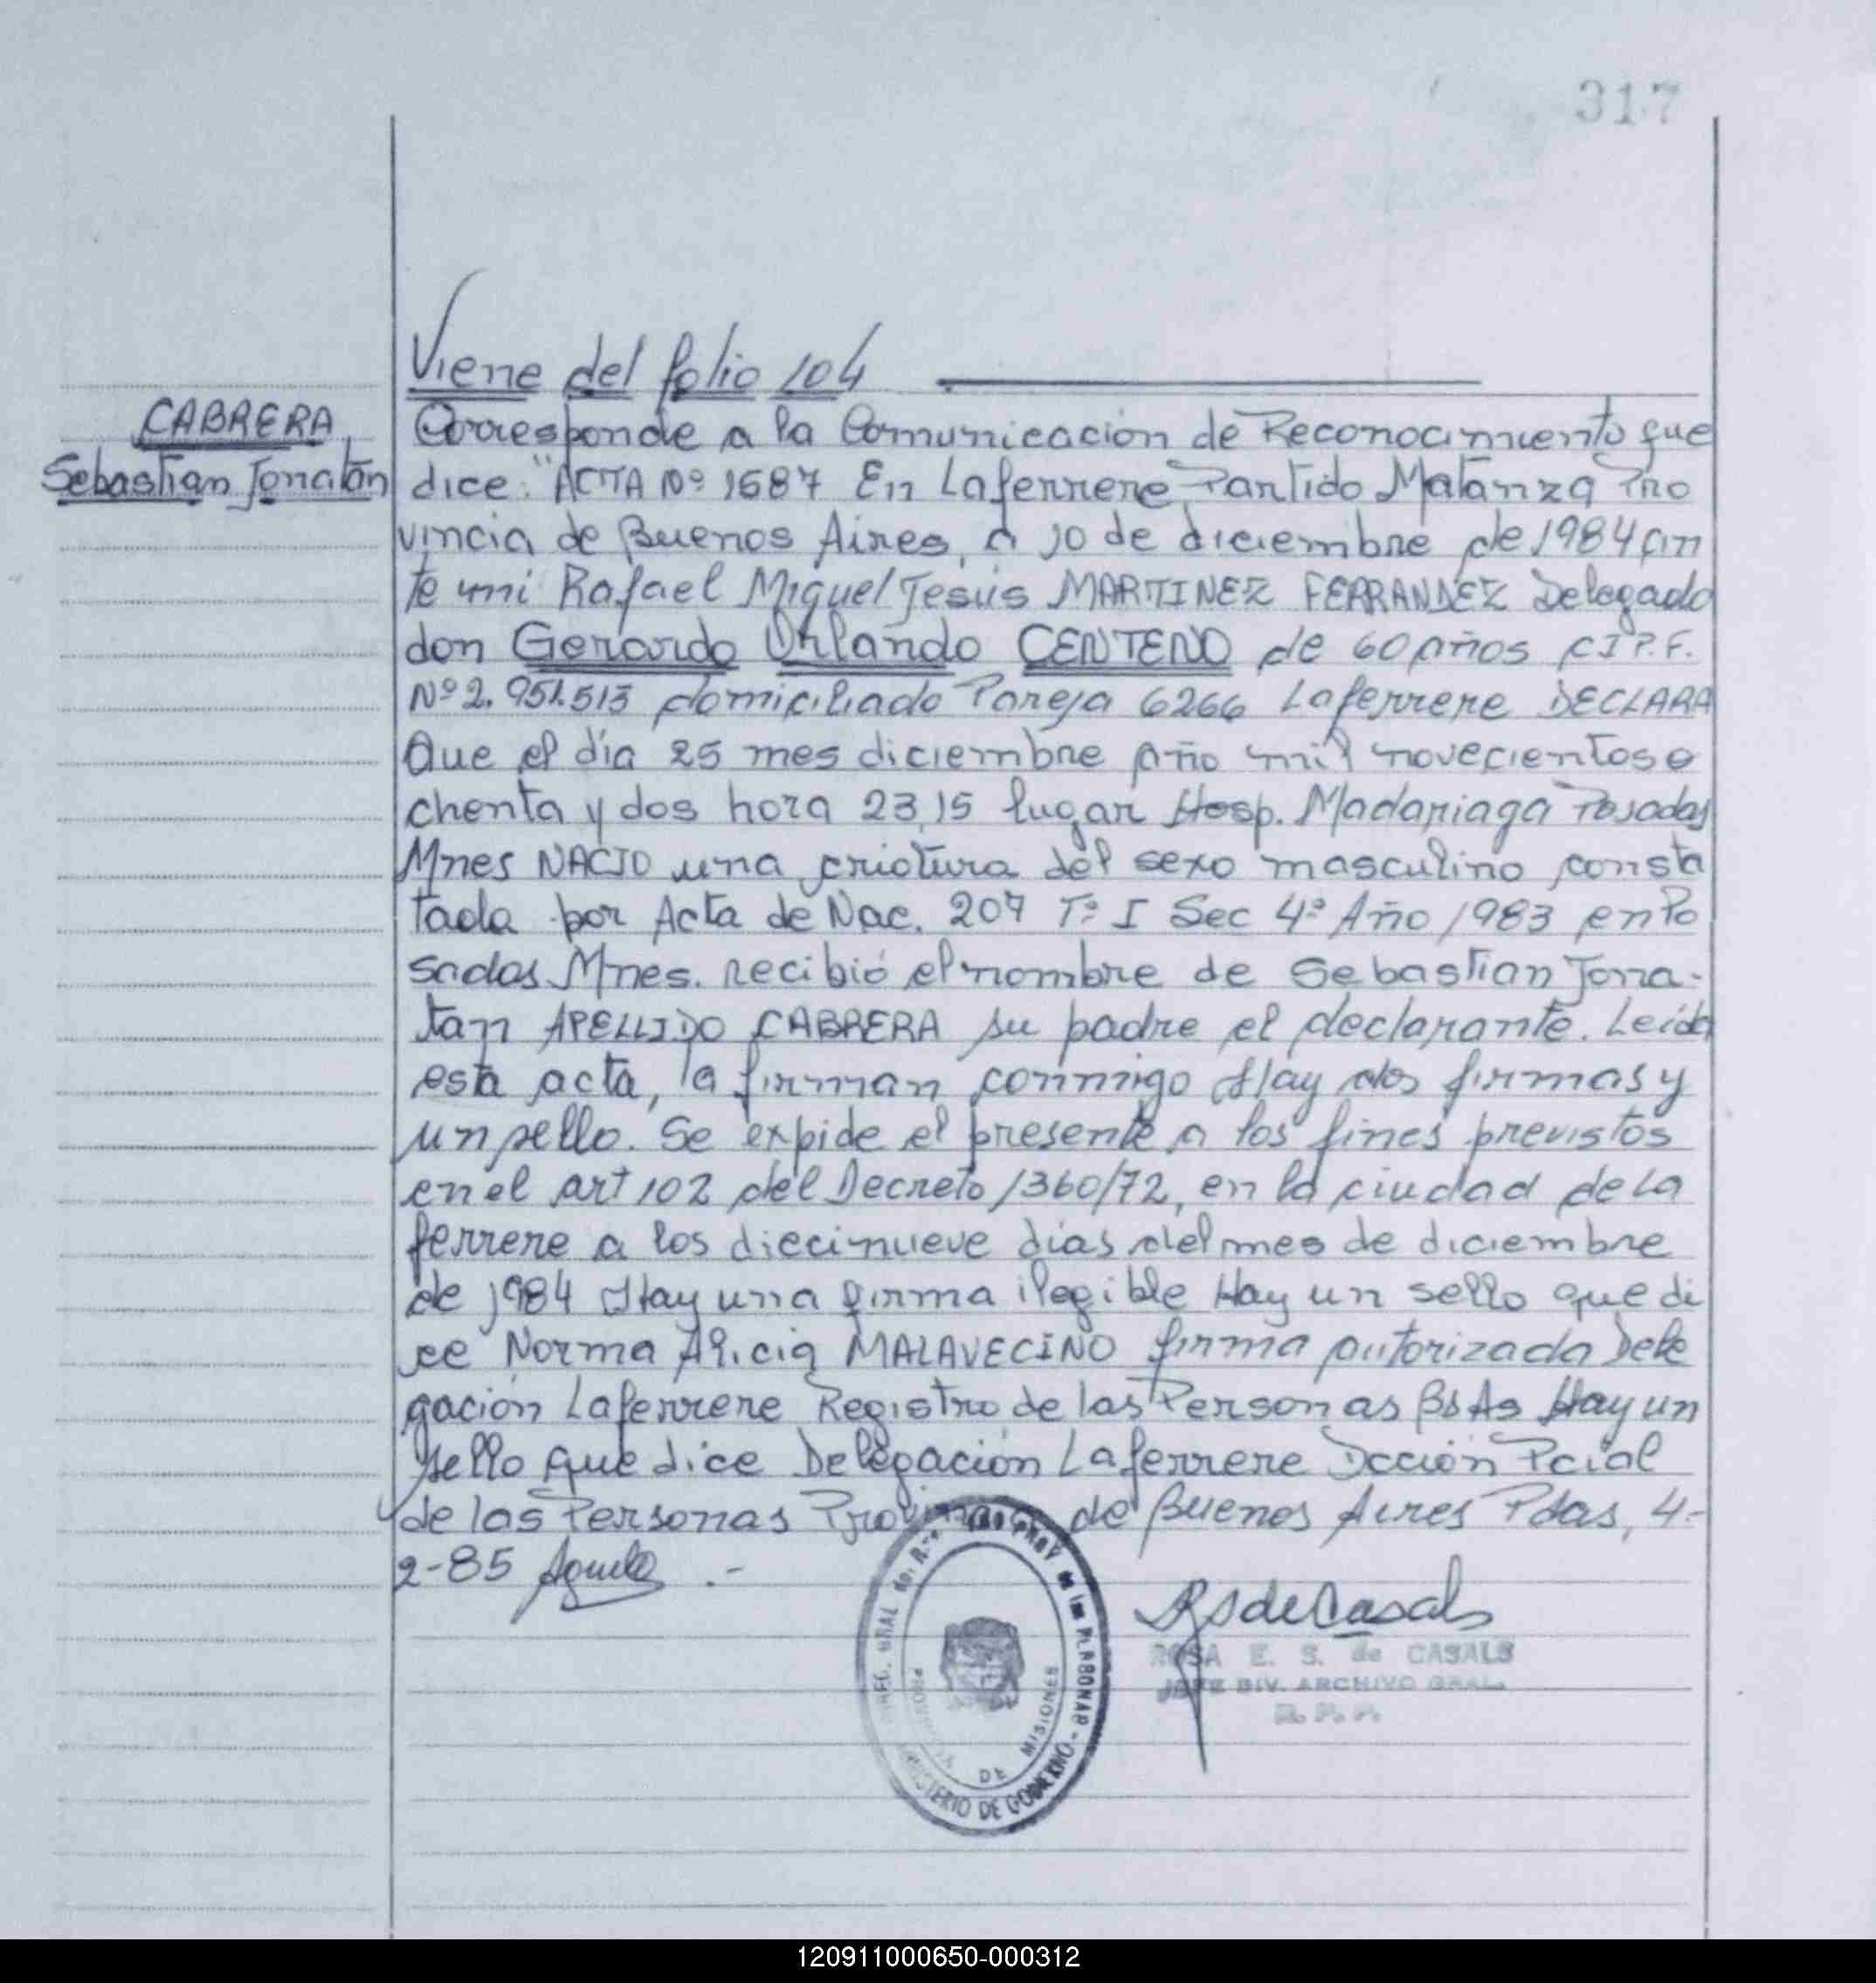 317
Viene del folio 104
CABRERA,
Sebastian Jonatan
Corresponde a la Comunicación de Reconocimiento que
dice: "ACTA Nº 1687 En Laferrere Partido Matanza Pro
vincia de Buenos Aires, a 10 de diciembre de 1984 an
te mi Rafael Miguel Jesús MARTINEZ FERRANDEZ Delegado
don Gerardo Orlando CENTENO de 60 años C.I.P.F.
Nº 2.951.513 domiciliado Pareja 6266 Laferrere DECLARA
Que el día 25 mes diciembre año mil novecientos o
chenta y dos hora 23,15 lugar Hosp. Madariaga Posadas
Mnes NACIO una criatura del sexo masculino consta
tada por Acta de Nac. 207 Tº I Sec 4º Año 1983 en Po
sadas Mnes. recibió el nombre de Sebastian Jona-
tan APELLIDO CABRERA su padre el declarante. Leída
esta acta, la firman conmigo Hay dos firmas y
un sello. Se expide el presente a los fines previstos
en el art 102 del Decreto 1360/72, en la ciudad de La
ferrere a los diecinueve días del mes de diciembre
de 1984 Hay una firma ilegible Hay un sello que di
ce Norma Alicia MALAVECINO firma autorizada Dele
gación Laferrere Registro de las Personas Bs As Hay un
sello que dice Delegación Laferrere Dcción Pcial
de las Personas Provincia de Buenos Aires Pdas, 4-
2-85 .-
RSdeCasals
ROSA E. S. de CASALS
JEFE DIV. ARCHIVO GRAL.
R. P. P.
PROVINCIA DE MISIONES
MINISTERIO DE GOBIERNO
120911000650-000312